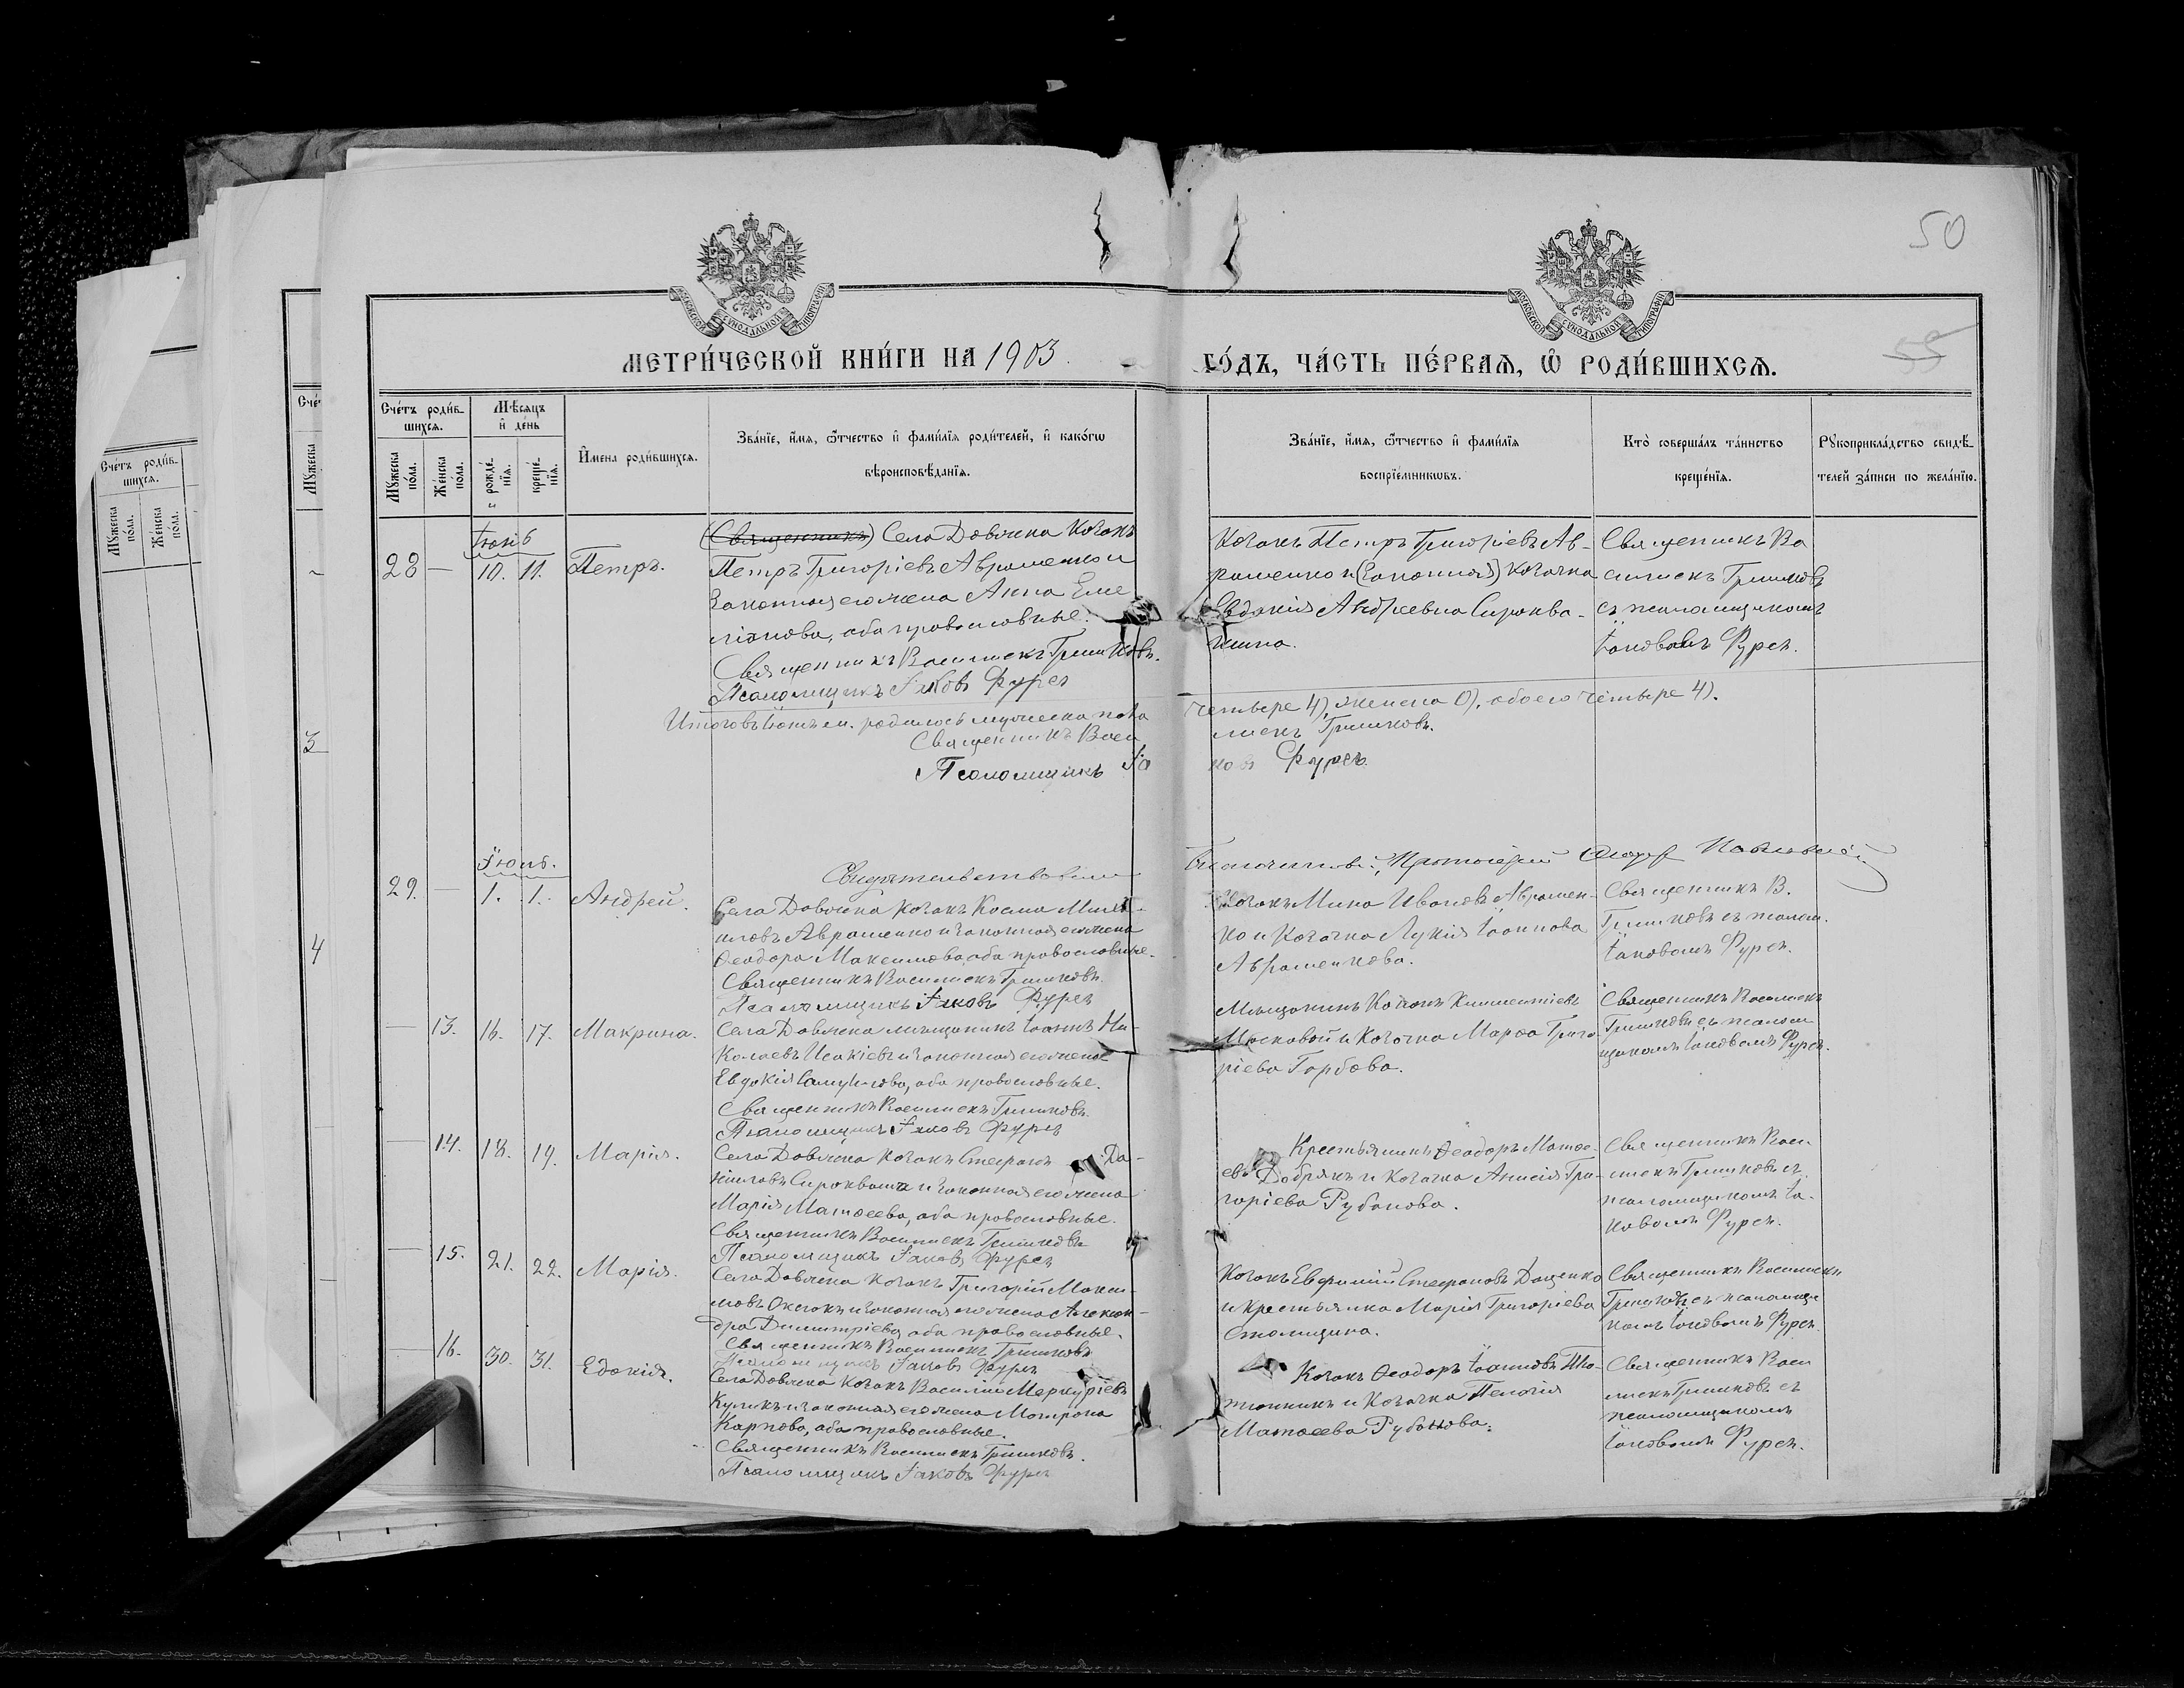 50
МОСКОВСКОЙ СѴНОДАЛЬНОЙ ТИПОГРАФІИ
МОСКОВСКОЙ СѴНОДАЛЬНОЙ ТИПОГРАФІИ
МЕТРИ́ЧЕСКОЙ КНИ́ГИ НА 1903
ГО́ДЪ, ЧА́СТЬ ПЕ́РВАЯ, Ѡ РОДИ́ВШИХСѦ.
Сче́тъ роди́в-
шихсѧ.
Мѣсѧцъ
и де́нь
Мꙋжеска
по́ла.
Же́нска
по́ла.
рожде́-
нїѧ.
креще́-
нїѧ.
И҆мена роди́вшихсѧ.
Зва́нїе, и҆́мѧ, ѻ҆́тчество и҆ фами́лїѧ роди́телей, и҆ како́гѡ
вѣроисповѣ́данїѧ.
Зва́нїе, и҆́мѧ, ѻ҆́тчество и҆ фами́лїѧ
воспрїе́мникѡвъ.
Кто̀ соверша́лъ та́инство
креще́нїѧ.
Рꙋкоприкла́дство свидѣ́-
телей за́писи по жела́нїю.
Сче́тъ роди́в-
шихсѧ.
Мꙋжеска
по́ла.
Же́нска
по́ла.
3
4
Іюнь
28 — 10. 11. Петръ.
(Священникъ) Села Довжика Козакъ
Петръ Григоріевъ Авраменко и
законная его жена Анна Еме
ліанова, оба православные.
Священникъ Василискъ Гришковъ.
Псаломщикъ Іаковъ Фурса
Козакъ Петръ Григоріевъ Ав-
раменко и (Законная) козачка
Евдокія Андреевна Сироква-
шина.
Священникъ Ва
силискъ Гришковъ
съ псаломщикомъ
Іаковомъ Фурса.
Итого въ Іюнѣ м. родилось мужеска пола
четыре 4), женска 0), обоего четыре 4).
Священникъ Васи
лискъ Гришковъ.
Псаломщикъ Іа
ковъ Фурса
Іюль.
Свидѣтельствовалъ
Благочинный, Протоіерей
29. — 1. 1. Андрей.
Села Довжика козакъ Косма Миха-
иловъ Авраменко и законная его жена
Ѳеодора Максимова, оба православные.
Священникъ Василискъ Гришковъ.
Псаломщикъ Іаковъ Фурса
Козакъ Мина Ивановъ Авранен-
ко и Козачка Лукія Іоаннова
Авраменкова.
Священникъ В.
Гришковъ съ псалом.
Іаковомъ Фурса.
— 13. 16. 17. Макрина.
Села Довжика мѣщанинъ Іоаннъ Ни-
колаевъ Исакіевъ и законная его жена
Евдокія Самуилова, оба православные.
Священникъ Василискъ Гришковъ.
Псаломщикъ Іаковъ Фурса
Мѣщанинъ Климентіевъ
Московой и Козачка Марѳа Григо-
ріева Горбова.
Священникъ Василискъ
Гришковъ съ псалом
щикомъ Іаковомъ Фурса.
— 14. 18. 19. Марія.
Села Довжика козакъ Стефанъ Да-
ниловъ Сироквашa и законная его жена
Марія Матѳеева, оба православные.
Священникъ Василискъ Гришковъ
Псаломщикъ Іаковъ Фурса
Крестьянинъ Ѳеодоръ Матѳе-
евъ Добрякъ и козачка Анисія Гри-
горіева Рубанова.
Священникъ Васи
лискъ Гришковъ съ
псаломщикомъ Іа-
ковомъ Фурса.
— 15. 21. 22. Марія.
Села Довжика козакъ Григорій Макси-
мовъ и законная его жена Алексан-
дра Димитріева, оба православные.
Священникъ Василискъ Гришковъ
Псаломщикъ Іаковъ Фурса
Козакъ Евфимій Стефановъ Даценко
и крестьянка Марія Григоріева
Столицына.
Священникъ Василискъ
Гришковъ съ псаломщи
комъ Іаковомъ Фурса.
— 16. 30. 31. Едокія.
Села Довжика козакъ Василій Меркуріевъ
Куликъ и законная его жена Мотрона
Карпова, оба православные.
Священникъ Василискъ Гришковъ.
Псаломщикъ Іаковъ Фурса
Козакъ Ѳеодоръ Іоанновъ Тю-
тюнникъ и Козачка Пелагія
Матѳеева Рубанова.
Священникъ Васи
лискъ Гришковъ съ
псаломщикомъ
Іаковомъ Фурса.